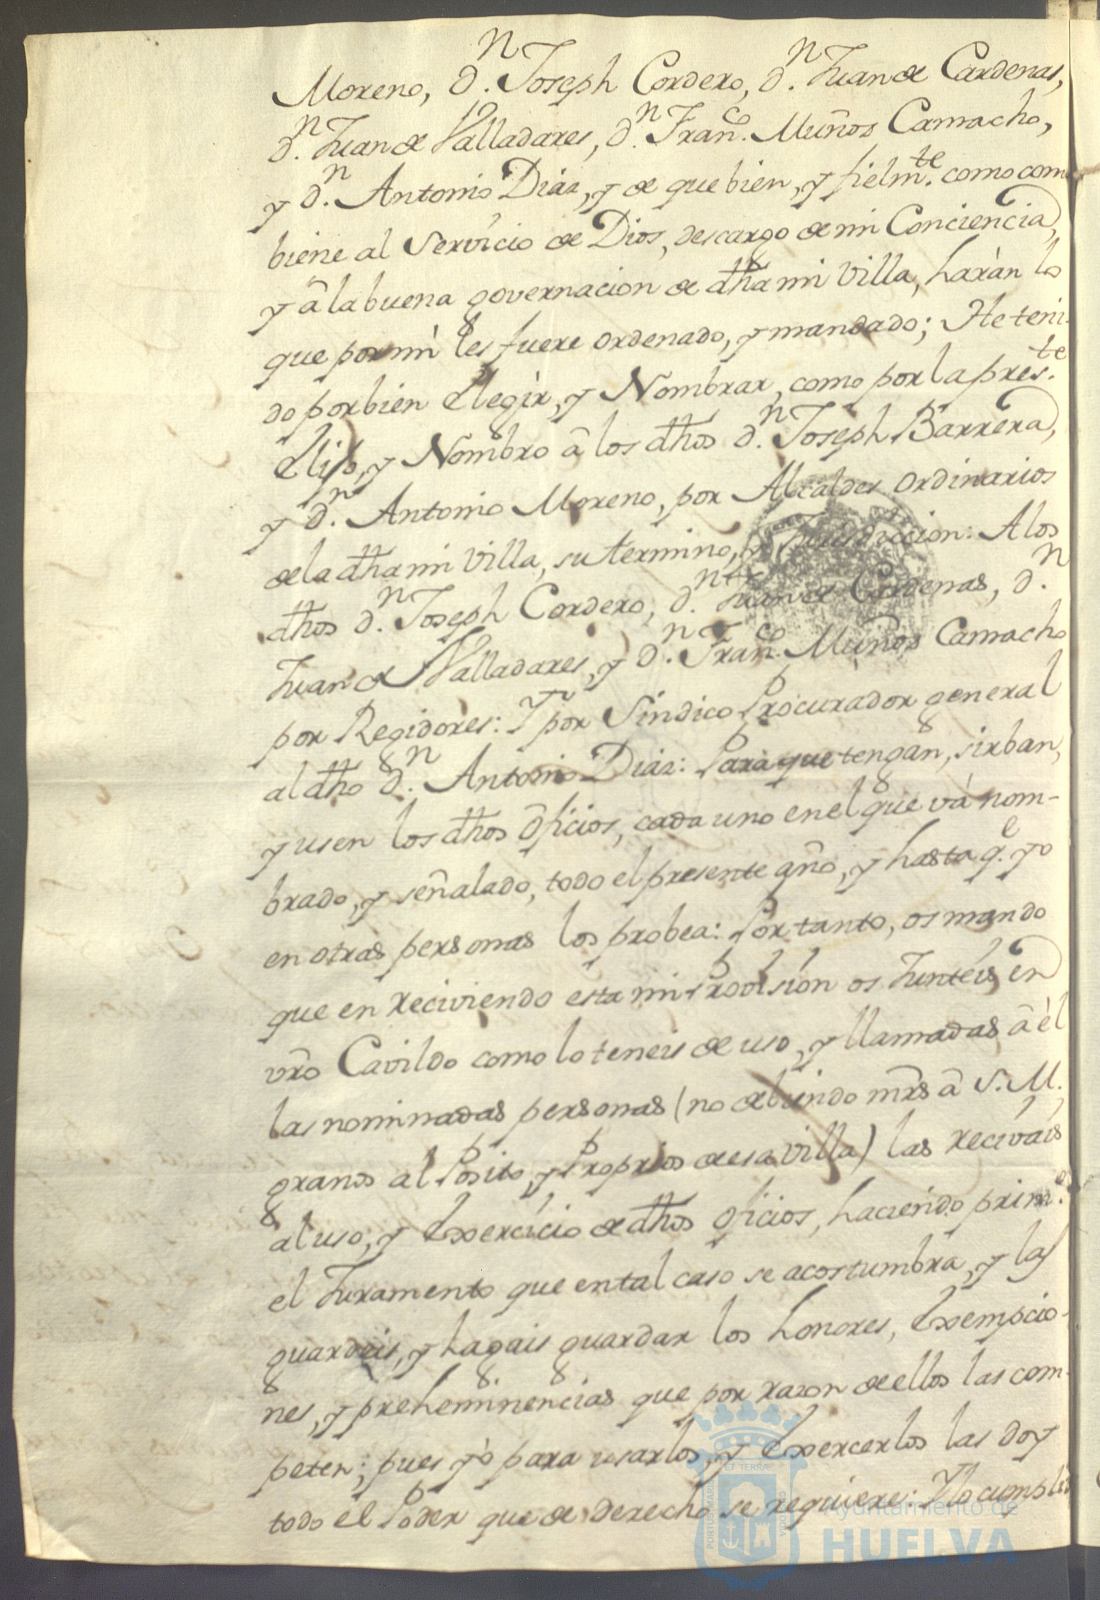 Moreno, d.n Joseph Cordero, d.n Juan de Cardenas,
d.n Juan de Valladares, d.n Fran.co Muños Camacho,
y d.n Antonio Diaz, y de que bien, y fielm.te como com
biene al servicio de Dios, descargo de mi Conciencia,
y â la buena governacion de dha mi Villa, haràn lo
que por mì les fuere ordenado, y mandado; He teni-
do por bien elegìr, y Nombrar, como por la pres.te
elijo, y Nombro â los dhos d.n Joseph Barrera,
y d.n Antonio Moreno, por Alcaldes ordinarios
de la dha mi Villa, su termino, y Jurisdiccion: A los
dhos d.n Joseph Cordero, d.n Juan de Cardenas, d.n
Juan de Valladares, y d.n Fran.co Muños Camacho
por Regidores: Y por Sindico Procurador general
al dho d.n Antonio Diaz: Para que tengan, sirban,
y usen los dhos oficios, cada uno en el que và nom-
brado, y señalado, todo el presente año, y hasta q.e yo
en otras personas los probea: Por tanto, os mando
que en reciviendo esta mi Provision os Junteis en
vro Cavildo como lo teneis de uso, y llamadas â èl
las nominadas personas (no debiendo mrs â S. M.
granos al Posito, y Proprios de esa Villa) las recivàis
al uso, y Exercicio de dhos oficios, haciendo prim.o
el Juramento que en tal caso se acostumbra, y las
guardeis, y hagais guardar los honores, Exempcio-
nes, y preheminencias que por razon de ellos las com-
peten; pues yò para usarlos, y Exercerlos las doy
todo el Poder que de derecho se requiere: Y lo cumplid
Ayuntamiento de
HUELVA